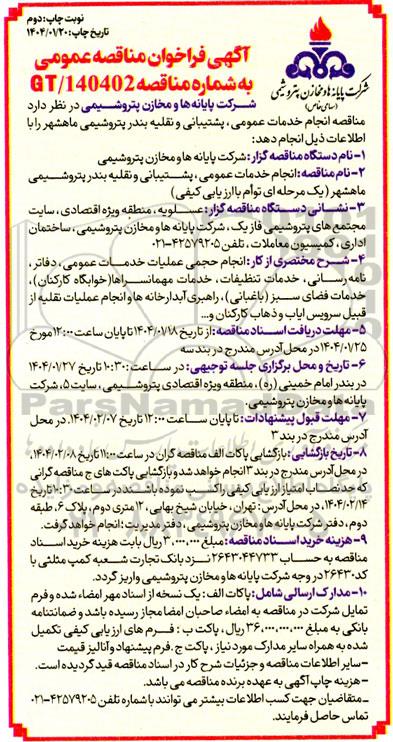 نوبت چاپ: دوم
تاریخ چاپ: ۱۴۰۴/۰۱/۲۰
آگهی فراخوان مناقصه عمومی
به شماره مناقصه GT/140402
شرکت پایانه‌ها و مخازن پتروشیمی
(سهامی خاص)
شرکت پایانه‌ها و مخازن پتروشیمی در نظر دارد
مناقصه انجام خدمات عمومی، پشتیبانی و نقلیه بندر پتروشیمی ماهشهر را با
اطلاعات ذیل انجام دهد:
۱- نام دستگاه مناقصه گزار: شرکت پایانه ها و مخازن پتروشیمی
۲- نام مناقصه: انجام خدمات عمومی، پشتیبانی و نقلیه بندر پتروشیمی
ماهشهر (یک مرحله ای توأم با ارزیابی کیفی)
۳- نشانی دستگاه مناقصه گزار: عسلویه، منطقه ویژه اقتصادی، سایت
مجتمع های پتروشیمی فاز یک، شرکت پایانه ها و مخازن پتروشیمی، ساختمان
اداری، کمیسیون معاملات، تلفن ۴۲۵۷۹۲۰۵-۰۲۱
۴- شرح مختصری از کار: انجام حجمی عملیات خدمات عمومی، دفاتر،
نامه رسانی، خدمات تنظیفات، خدمات مهمانسراها (خوابگاه کارکنان)،
خدمات فضای سبز (باغبانی)، راهبری آبدارخانه ها و انجام عملیات نقلیه از
قبیل سرویس ایاب و ذهاب کارکنان و...
۵- مهلت دریافت اسناد مناقصه: از تاریخ ۱۴۰۴/۰۱/۱۸ تا پایان ساعت ۱۲:۰۰ مورخ
۱۴۰۴/۰۱/۲۵ در محل آدرس مندرج در بند سه
۶- تاریخ و محل برگزاری جلسه توجیهی: در ساعت: ۱۰:۳۰ تاریخ ۱۴۰۴/۰۱/۲۷
در بندر امام خمینی (ره)، منطقه ویژه اقتصادی پتروشیمی، سایت ۵، شرکت
پایانه ها و مخازن پتروشیمی.
۷- مهلت قبول پیشنهادات: تا پایان ساعت ۱۲:۰۰ تاریخ ۱۴۰۴/۰۲/۰۷ در محل
آدرس مندرج در بند ۳
۸- تاریخ بازگشایی: بازگشایی پاکات الف مناقصه گران در ساعت ۱۱:۰۰ تاریخ ۱۴۰۴/۰۲/۰۸،
در محل آدرس مندرج در بند ۳ انجام خواهد شد و بازگشایی پاکت های ج مناقصه گرانی
که حد نصاب امتیاز ارزیابی کیفی را کسب نموده باشند در ساعت ۱۰:۳۰ تاریخ
۱۴۰۴/۰۲/۱۴، در محل آدرس: تهران، خیابان شیخ بهایی، ۱۲ متری دوم، پلاک ۶، طبقه
دوم، دفتر شرکت پایانه ها و مخازن پتروشیمی، دفتر مدیریت؛ انجام خواهد گرفت.
۹- هزینه خرید اسناد مناقصه: مبلغ ۳,۰۰۰,۰۰۰ ریال بابت هزینه خرید اسناد
مناقصه به حساب ۲۶۴۳۰۴۴۷۳۳ نزد بانک تجارت شعبه کمپ مثلثی با
کد ۲۶۴۳۰ در وجه شرکت پایانه ها و مخازن پتروشیمی واریز گردد.
۱۰- مدارک ارسالی شامل: پاکات الف: یک نسخه از اسناد مهر امضاء شده و فرم
تمایل شرکت در مناقصه به امضاء صاحبان امضا مجاز رسیده باشد و ضمانتنامه
بانکی به مبلغ ۳۶,۰۰۰,۰۰۰,۰۰۰ ریال، پاکت ب: فرم های ارزیابی کیفی تکمیل
شده به همراه سایر مدارک مورد نیاز، پاکت ج. فرم پیشنهاد و آنالیز قیمت
- سایر اطلاعات مناقصه و جزئیات شرح کار در اسناد مناقصه قید گردیده است.
- هزینه چاپ آگهی به عهده برنده مناقصه می باشد.
- متقاضیان جهت کسب اطلاعات بیشتر می توانند با شماره تلفن ۴۲۵۷۹۲۰۵-۰۲۱
تماس حاصل فرمایند.